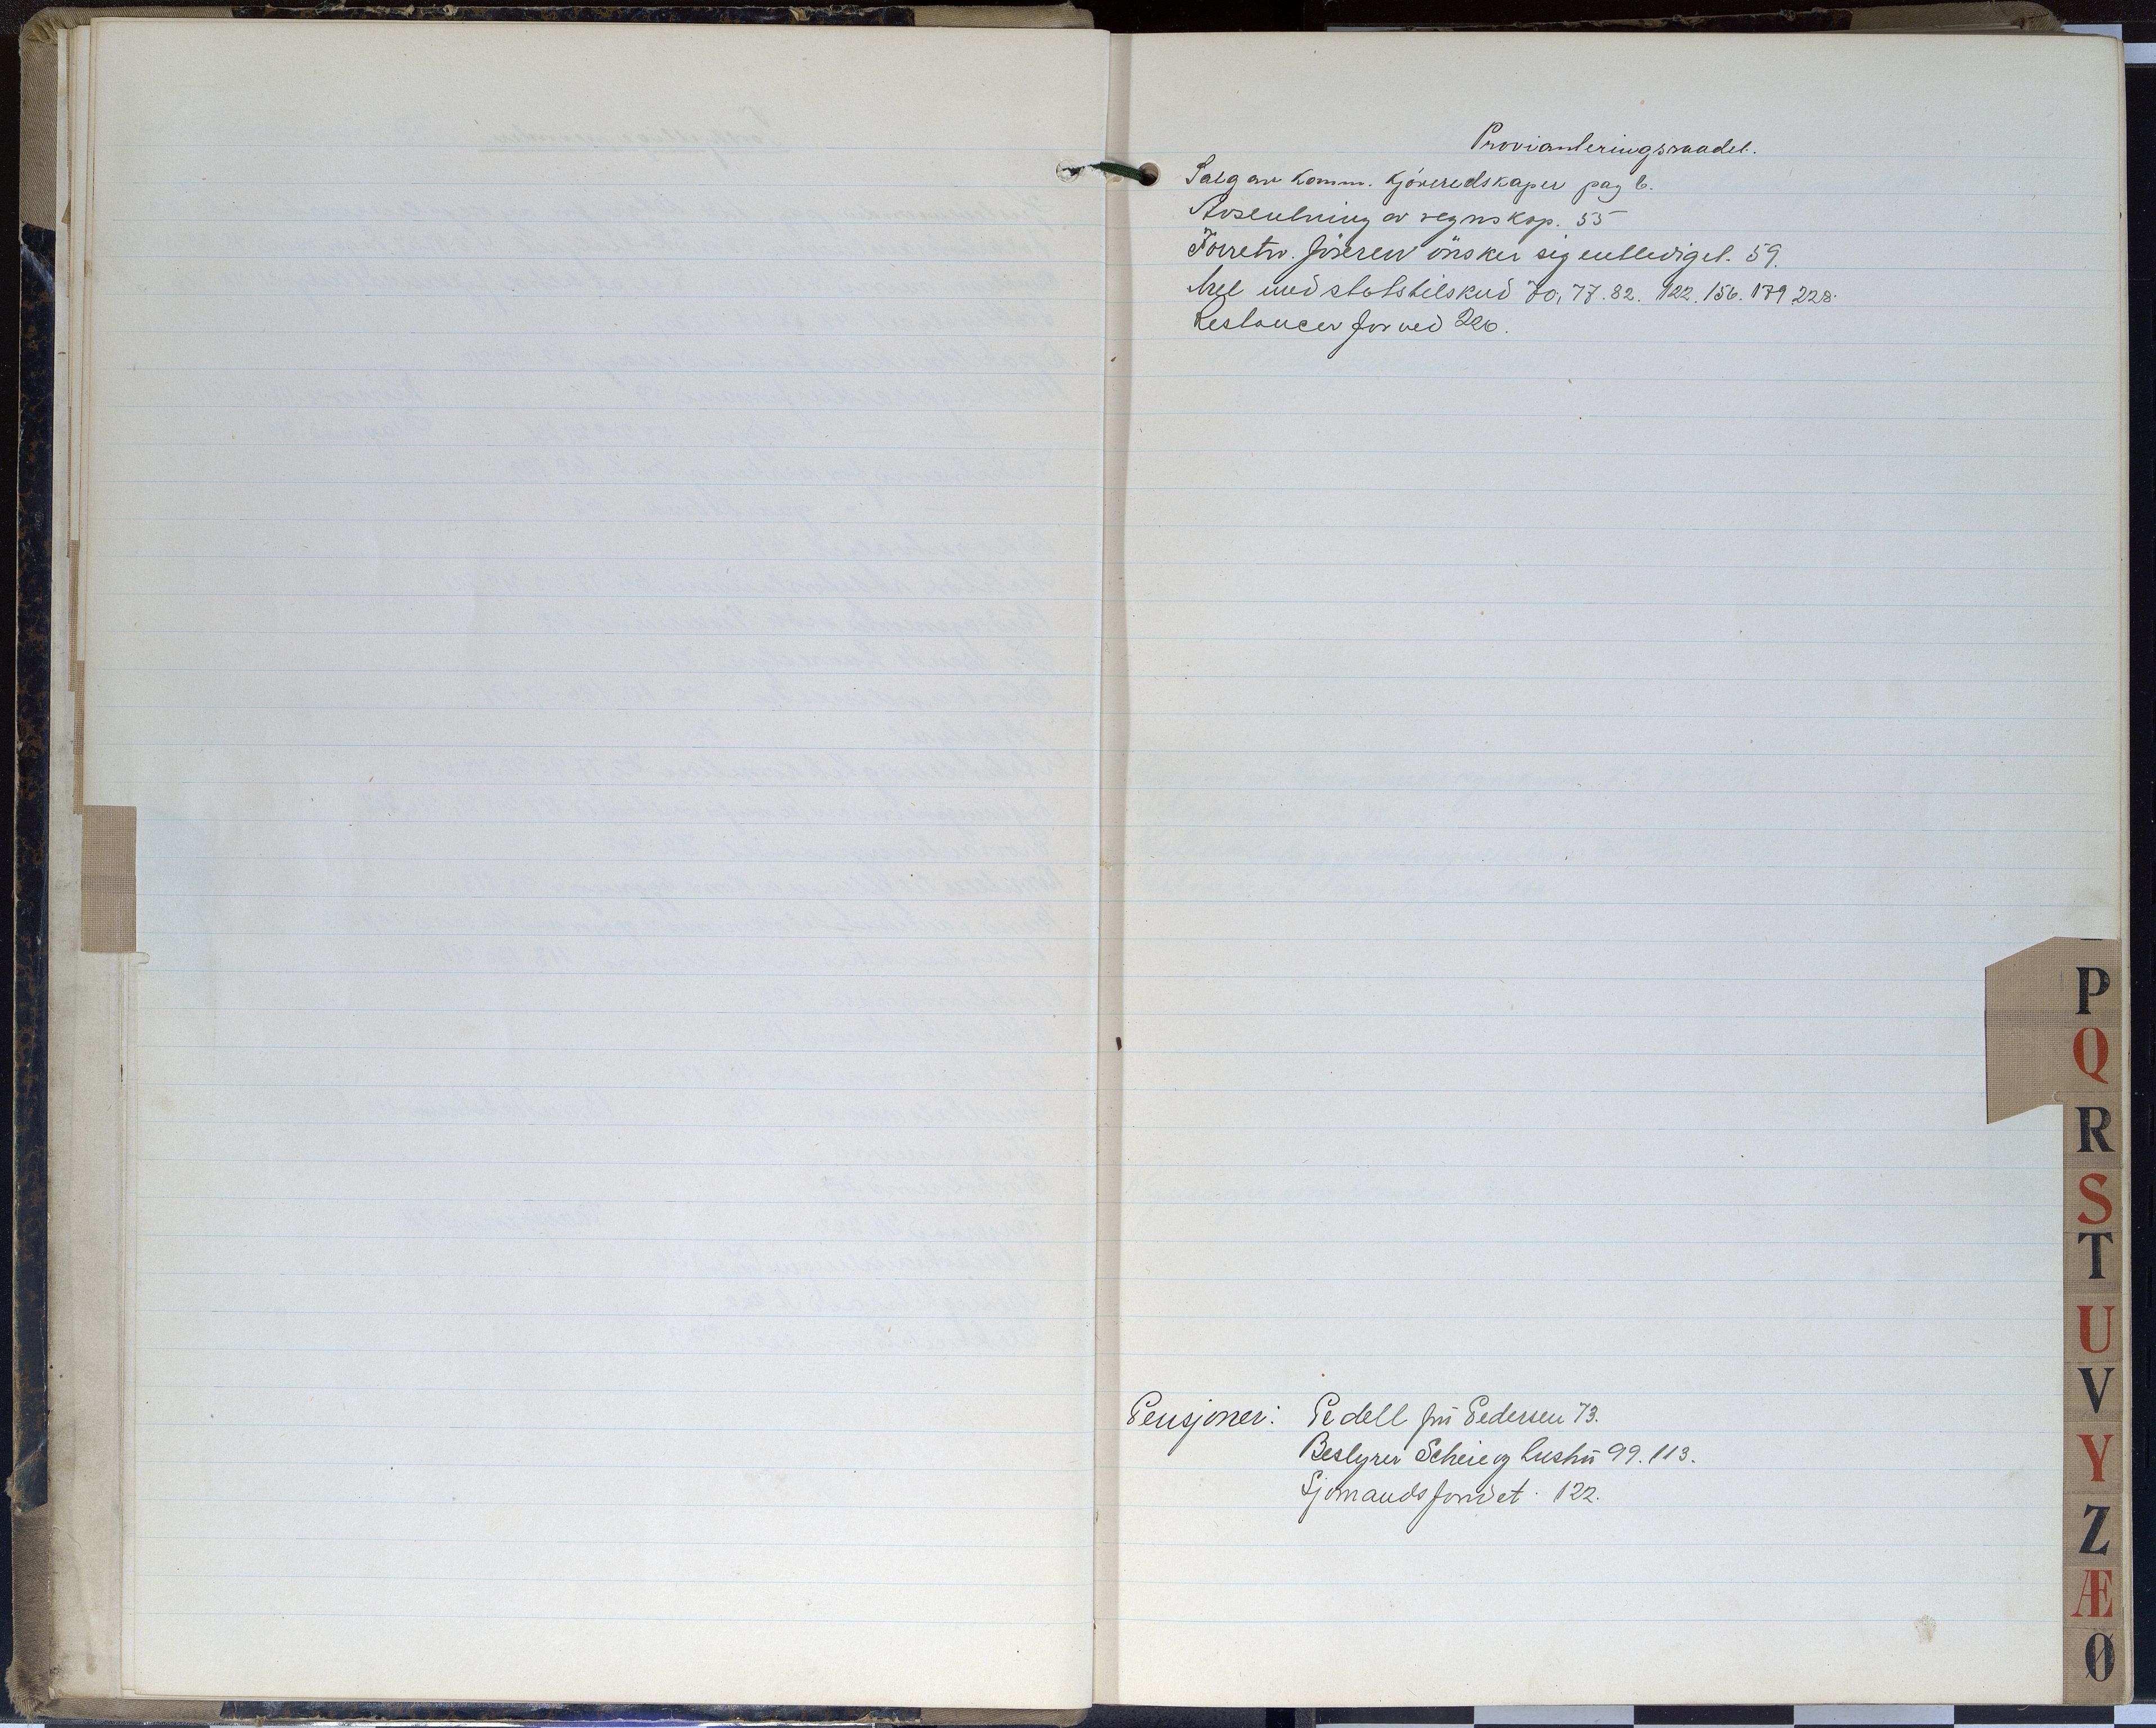 Provianteringsraadet.
Salg av Komm. Kjöreredskaper pag 6.
Avslutning av regnskap. 55
Forretn. föreren önsker sig entlediget. 59.
Mel med statstilskud 70, 77. 82. 122. 156. 179 228.
Restancer for ved 226.
Pensjoner: Pedell fru Pedersen 73.
Bestyrer Scheie og hustru 99. 113.
Sjömandsfondet 122.
P
Q
R
S
T
U
V
Y
Z
Æ
Ø